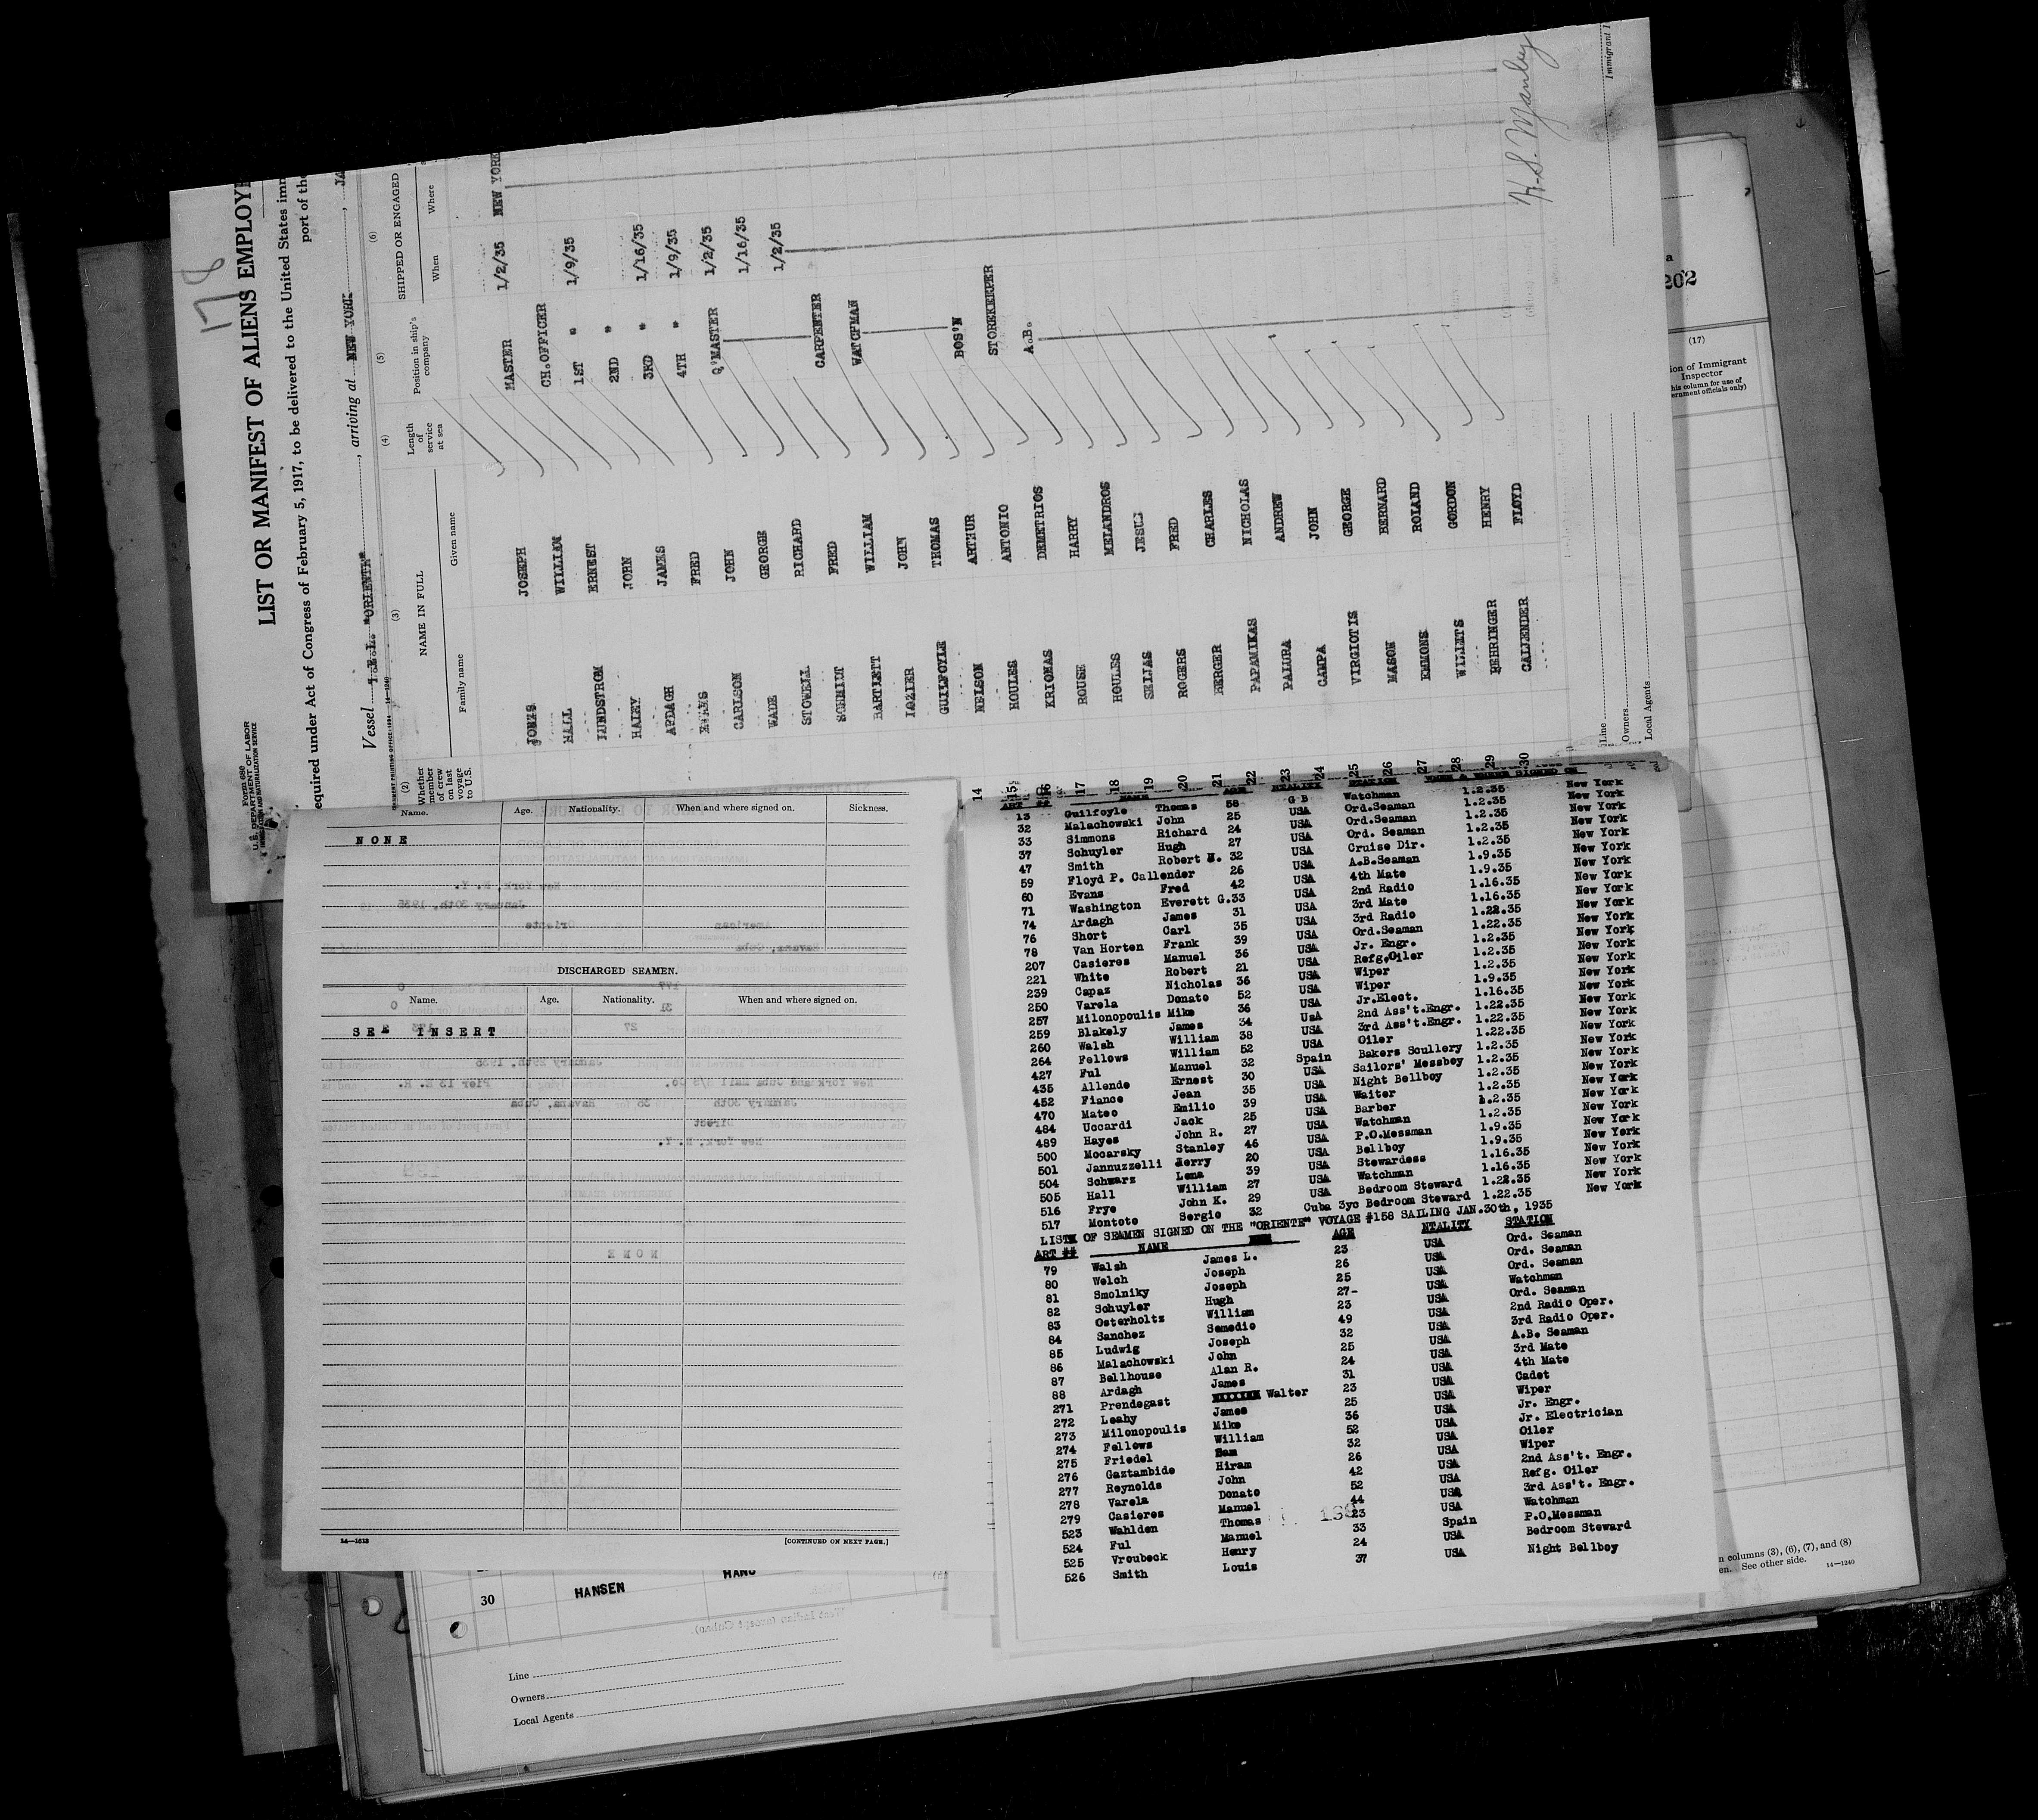 178
Form 680
U. S. DEPARTMENT OF LABOR
IMMIGRATION AND NATURALIZATION SERVICE
LIST OR MANIFEST OF ALIENS EMPLOYE
equired under Act of Congress of February 5, 1917, to be delivered to the United States imm
port of the
Vessel T.E.L. "ORIENTE", arriving at NEW YORK, JA
(2) (3) (4) (5) (6)
Whether member of crew on last voyage to U.S. NAME IN FULL Length of service at sea Position in ship's company SHIPPED OR ENGAGED
Family name Given name When Where
JONES JOSEPH MASTER 1/2/35 NEW YORK
HALL WILLIAM CH.OFFICER
LUNDSTROM ERNEST 1ST " 1/9/35
HALEY JOHN 2ND "
ARDAGH JAMES 3RD " 1/16/35
EVANS FRED 4TH " 1/9/35
CARLSON JOHN Q'MASTER 1/2/35
WADE GEORGE 1/16/35
STOWELL RICHARD 1/2/35
SCHMIDT FRED CARPENTER
BARTLETT WILLIAM WATCHMAN
LOZIER JOHN
GUILFOYLE THOMAS
14 NELSON ARTHUR BOS'N
15 HOULES ANTONIO STOREKEEPER
16 KRIONAS DEMETRIOS A.B.
17 ROUSE HARRY
18 HOULES MELANDROS
19 SEIJAS JESUS
20 ROGERS FRED
21 BERGER CHARLES
22 PAPAMIKAS NICHOLAS
23 PALURA ANDREW
24 CAMPA JOHN
25 VIRGIOTIS GEORGE
26 MASON BERNARD
27 EMMONS ROLAND
28 WILLETS GORDON
29 BEHRINGER HENRY
30 CALLENDER FLOYD
Line
Owners
Local Agents
H.S. Manley
Immigrant I
202
(17)
ion of Immigrant
Inspector
his column for use of
ernment officials only)
Name. Age. Nationality. When and where signed on. Sickness.
NONE
DISCHARGED SEAMEN.
Name. Age. Nationality. When and where signed on.
SEE INSERT
14—1613 [CONTINUED ON NEXT PAGE.]
ART ## NAME AGE NTALITY STATION WHEN & WHERE SIGNED ON
13 Guilfoyle Thomas 58 G B Watchman 1.2.35 New York
32 Malachowski John 25 USA Ord.Seaman 1.2.35 New York
33 Simmons Richard 24 USA Ord.Seaman 1.2.35 New York
37 Schuyler Hugh 27 USA Ord. Seaman 1.2.35 New York
47 Smith Robert N. 32 USA Cruise Dir. 1.2.35 New York
59 Floyd P. Callender 26 USA A.B.Seaman 1.9.35 New York
60 Evans Fred 42 USA 4th Mate 1.9.35 New York
71 Washington Everett G.33 USA 2nd Radio 1.16.35 New York
74 Ardagh James 31 USA 3rd Mate 1.16.35 New York
76 Short Carl 35 USA 3rd Radio 1.22.35 New York
78 Van Horten Frank 39 USA Ord.Seaman 1.22.35 New York
207 Casieres Manuel 36 USA Jr. Engr. 1.2.35 New York
221 White Robert 21 USA Refg.Oiler 1.2.35 New York
239 Capaz Nicholas 36 USA Wiper 1.2.35 New York
250 Varela Donato 52 USA Wiper 1.9.35 New York
257 Milonopoulis Mike 36 USA Jr.Elect. 1.16.35 New York
259 Blakely James 34 UsA 2nd Ass't.Engr. 1.22.35 New York
260 Walsh William 38 USA 3rd Ass't.Engr. 1.22.35 New York
264 Fellows William 52 USA Oiler 1.22.35 New York
427 Ful Manuel 32 Spain Bakers Scullery 1.2.35 New York
435 Allende Ernest 30 USA Sailors' Messboy 1.2.35 New York
452 Fiance Jean 35 USA Night Bellboy 1.2.35 New York
470 Mateo Emilio 39 USA Waiter 1.2.35 New York
484 Uccardi Jack 25 USA Barber 1.2.35 New York
489 Hayes John R. 27 USA Watchman 1.2.35 New York
500 Mocarsky Stanley 46 USA P.O.Messman 1.9.35 New York
501 Jannuzzelli Jerry 20 USA Bellboy 1.9.35 New York
504 Schwarz Lena 39 USA Stewardess 1.16.35 New York
505 Hall William 27 USA Watchman 1.16.35 New York
516 Frye John K. 29 USA Bedroom Steward 1.22.35 New York
517 Montoto Sergio 32 Cuba 3yc Bedroom Steward 1.22.35 New York
LIST OF SEAMEN SIGNED ON THE "ORIENTE" VOYAGE #158 SAILING JAN.30th, 1935
ART ## NAME AGE NTALITY STATION
79 Walsh James L. 23 USA Ord. Seaman
80 Welch Joseph 26 USA Ord. Seaman
81 Smolniky Joseph 25 USA Ord. Seaman
82 Schuyler Hugh 27- USA Watchman
83 Osterholtz William 23 USA Ord. Seaman
84 Sanchez Semedio 49 USA 2nd Radio Oper.
85 Ludwig Joseph 32 USA 3rd Radio Oper.
86 Malachowski John 25 USA A.B. Seaman
87 Bellhouse Alan R. 24 USA 3rd Mate
88 Ardagh James 31 USA 4th Mate
271 Prendegast Walter 23 USA Cadet
272 Leahy James 25 USA Wiper
273 Milonopoulis Mike 36 USA Jr. Engr.
274 Fellows William 52 USA Jr. Electrician
275 Friedel Sam 32 USA Oiler
276 Gaztambide Hiram 26 USA Wiper
277 Reynolds John 42 USA 2nd Ass't. Engr.
278 Varela Donato 52 USA Refg. Oiler
279 Casieres Manuel 44 USA 3rd Ass't. Engr.
523 Wahlden Thomas 23 USA Watchman
524 Ful Manuel 33 Spain P.O.Messman
525 Vroubeck Henry 24 USA Bedroom Steward
526 Smith Louis 37 USA Night Bellboy
30 HANSEN HANS
Line
Owners
Local Agents
n columns (3), (6), (7), and (8)
en. See other side. 14—1240